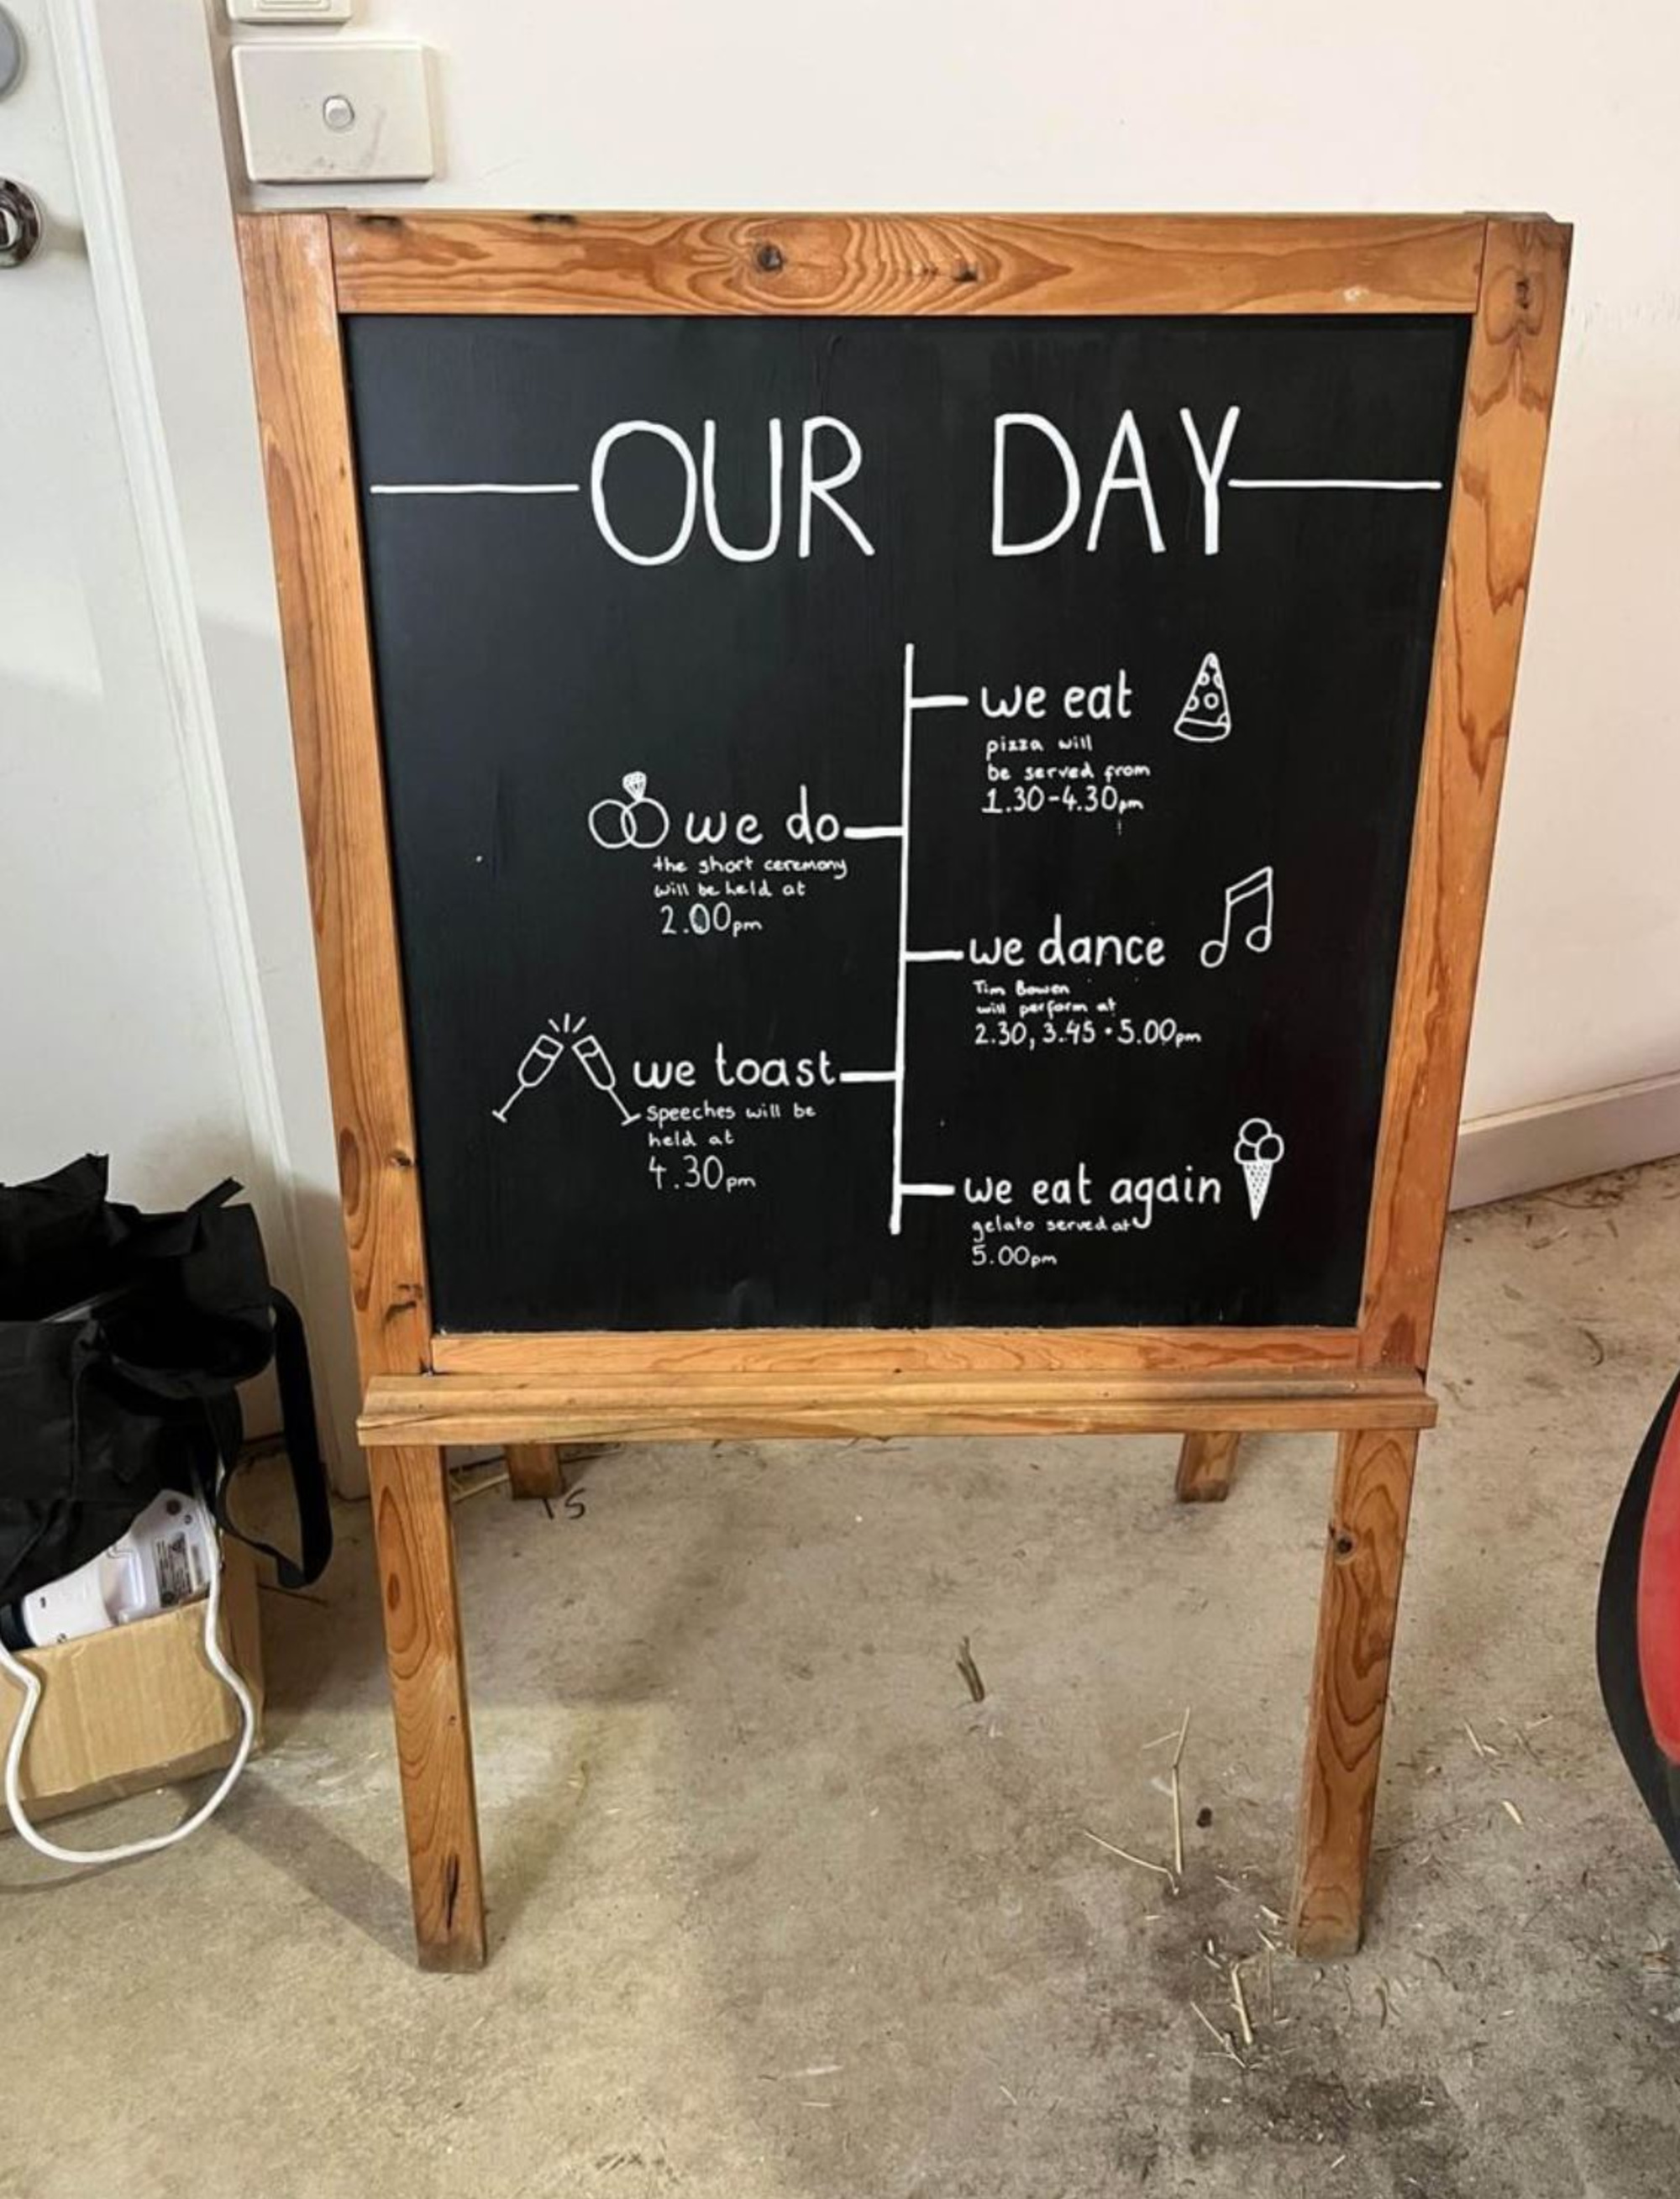 OUR DAY
we eat
pizza will
be served from
1.30-4.30pm
we do
the short ceremony
will be held at
2.00pm
we dance
Tim Bowen
will perform at
2.30, 3.45 • 5.00pm
we toast
speeches will be
held at
4.30pm
we eat again
gelato served at
5.00pm